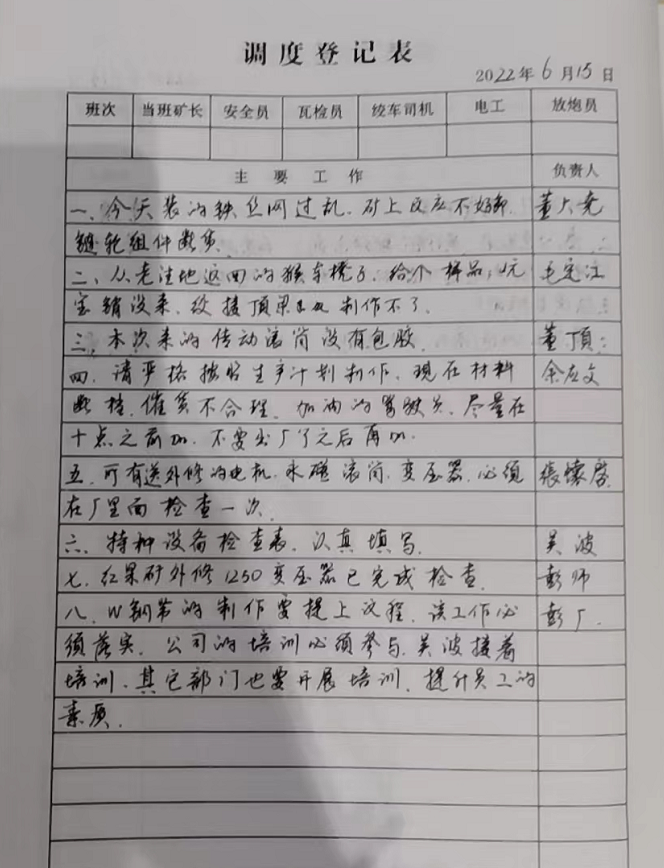 调度登记表
2022年6月15日
班次 当班矿长 安全员 瓦检员 绞车司机 电工 放炮员
主要工作 负责人
一、今天装的铁丝网过乱，矿上反应不好卸。 董大尧
链轮组件数货。
二、从老洼地返回的猴车凳子，给个样品，元 毛定江
宝销没来，绞接顶梁制作不了。
三、本次来的传动滚筒没有包胶。 董顶：
四、请严格按照生产计划制作，现在材料 余应文
断档，催货不合理，加油的驾驶员，尽量在
十点之前加，不要出厂了之后再加。
五、所有送外修的电机，永磁滚筒，变压器，必须 张懷啓
在厂里面检查一次。
六、特种设备检查表，认真填写。 吴波
七、红果矿外修1250变压器已完成检查。 彭师
八、W钢带的制作要提上议程，该工作必 彭厂.
须落实，公司的培训必须参与，吴波接着
培训，其它部门也要开展培训，提升员工的
素质。